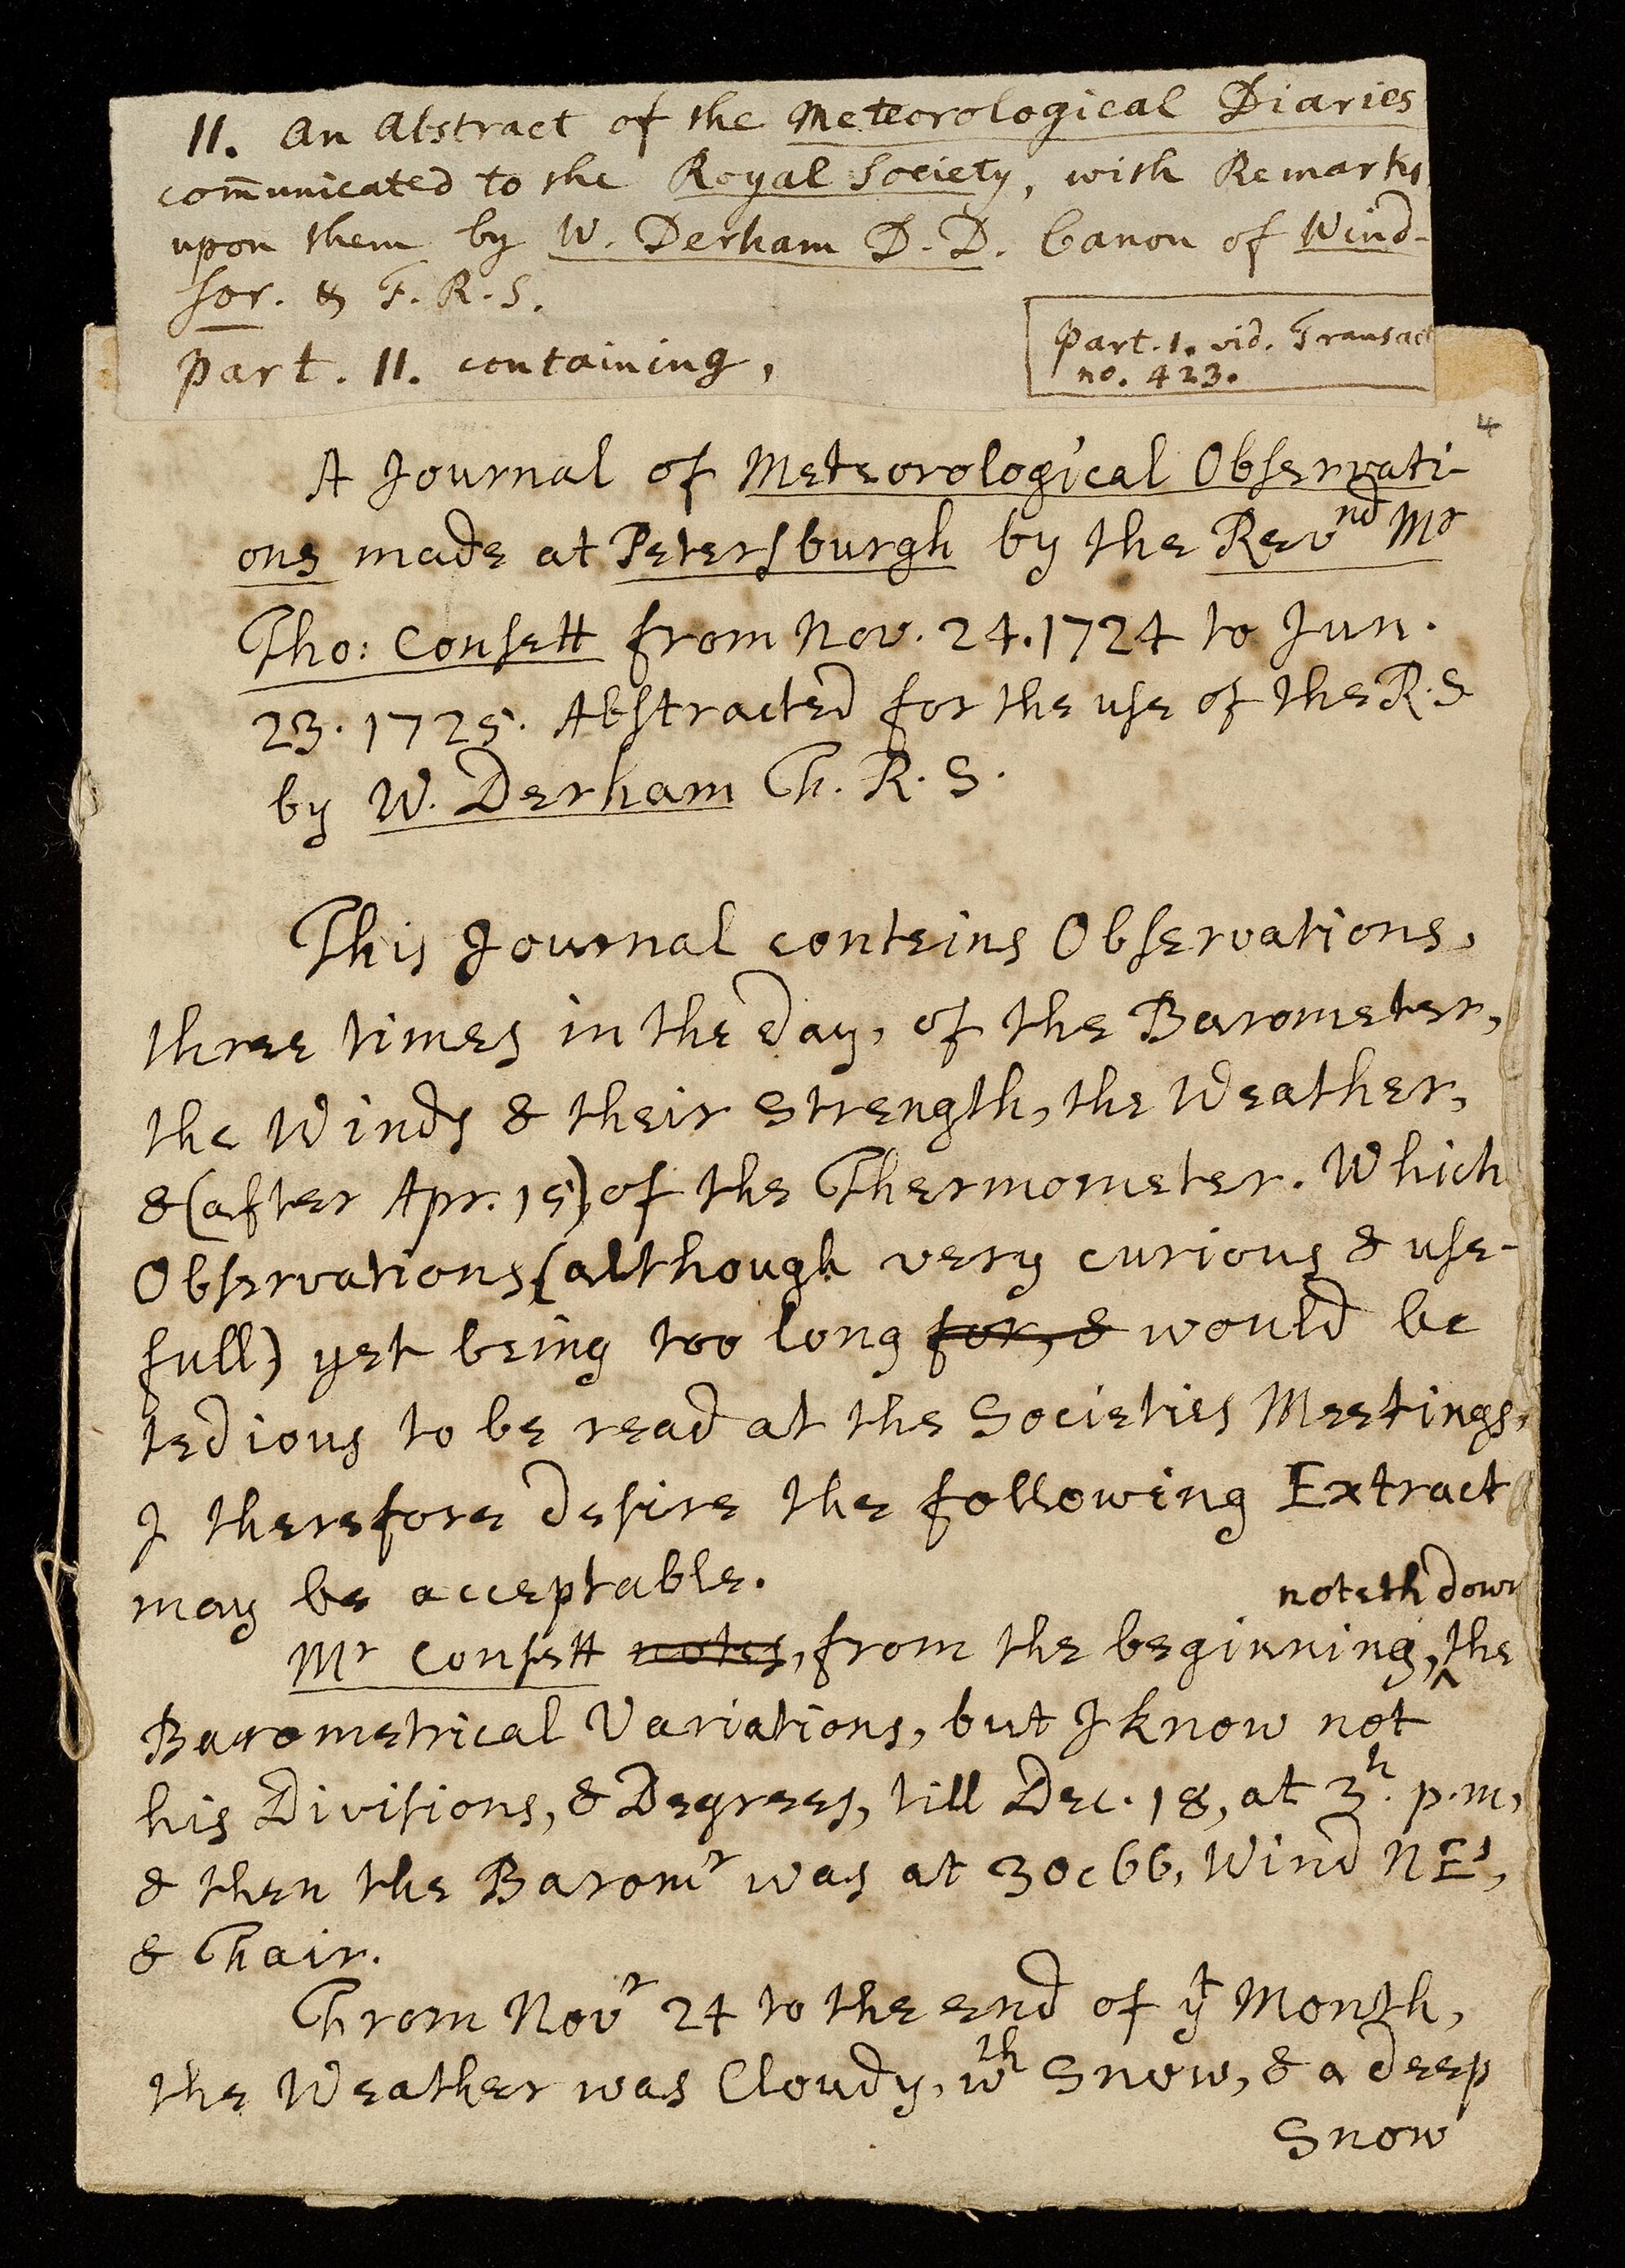 II. An Abstract of the Meteorological Diaries
com̄unicated to the Royal Society, with Remarks
upon them by W. Derham D.D. Canon of Wind-
sor. & F.R.S.
Part. II. containing,
Part. 1. vid. Transact
no. 423.
4
A Journal of Meteorological Observati-
ons made at Petersburgh by the Revnd Mr
Tho: Consett from Nov. 24. 1724 to Jun.
23. 1725. Abstracted for the use of the R.S
by W. Derham F.R.S.
This Journal conteins Observations,
three times in the day, of the Barometer,
the Winds & their Strength, the Weather,
& (after Apr. 15) of the Thermometer. Which
Observations (although very curious & use-
full) yet being too long for, & would be
tedious to be read at the Societies Meetings,
I therefore desire the following Extract
may be acceptable.
noteth down
Mr Consett notes, from the beginning, ^ the
Barometrical Variations, but I know not
his Divisions, & Degrees, till Dec. 18, at 3h. p.m,
& then the Baromr was at 30c66, Wind NE1,
& Fair.
From Novr 24 to the end of yt Month,
the Weather was Cloudy, wth Snow, & a deep
Snow